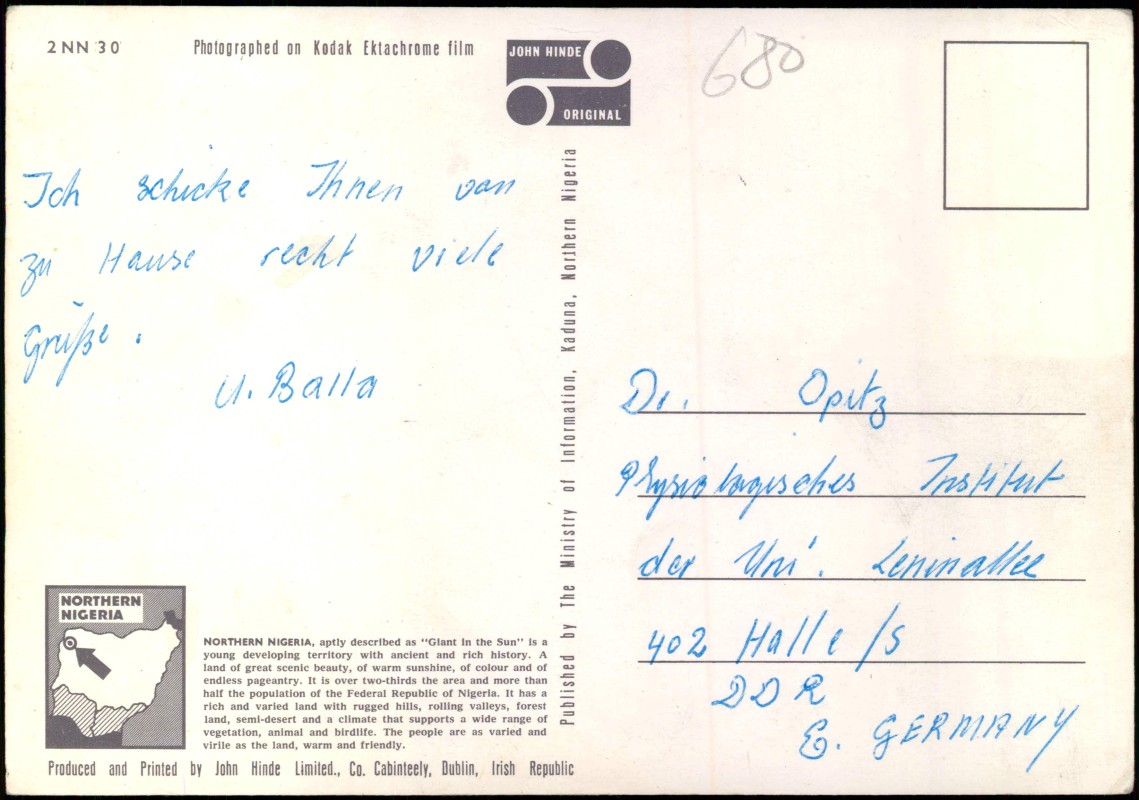 2 NN 30
Photographed on Kodak Ektachrome film
JOHN HINDE
ORIGINAL
680
Ich schicke Ihnen von
zu Hause recht viele
Grüße.
U. Balla
Published by The Ministry of Information, Kaduna, Northern Nigeria
Dr. Opitz
Physiologisches Institut
der Uni. Leninallee
402 Halle/S
DDR
E. GERMANY
NORTHERN
NIGERIA
NORTHERN NIGERIA, aptly described as "Giant in the Sun" is a
young developing territory with ancient and rich history. A
land of great scenic beauty, of warm sunshine, of colour and of
endless pageantry. It is over two-thirds the area and more than
half the population of the Federal Republic of Nigeria. It has a
rich and varied land with rugged hills, rolling valleys, forest
land, semi-desert and a climate that supports a wide range of
vegetation, animal and birdlife. The people are as varied and
virile as the land, warm and friendly.
Produced and Printed by John Hinde Limited., Co. Cabinteely, Dublin, Irish Republic